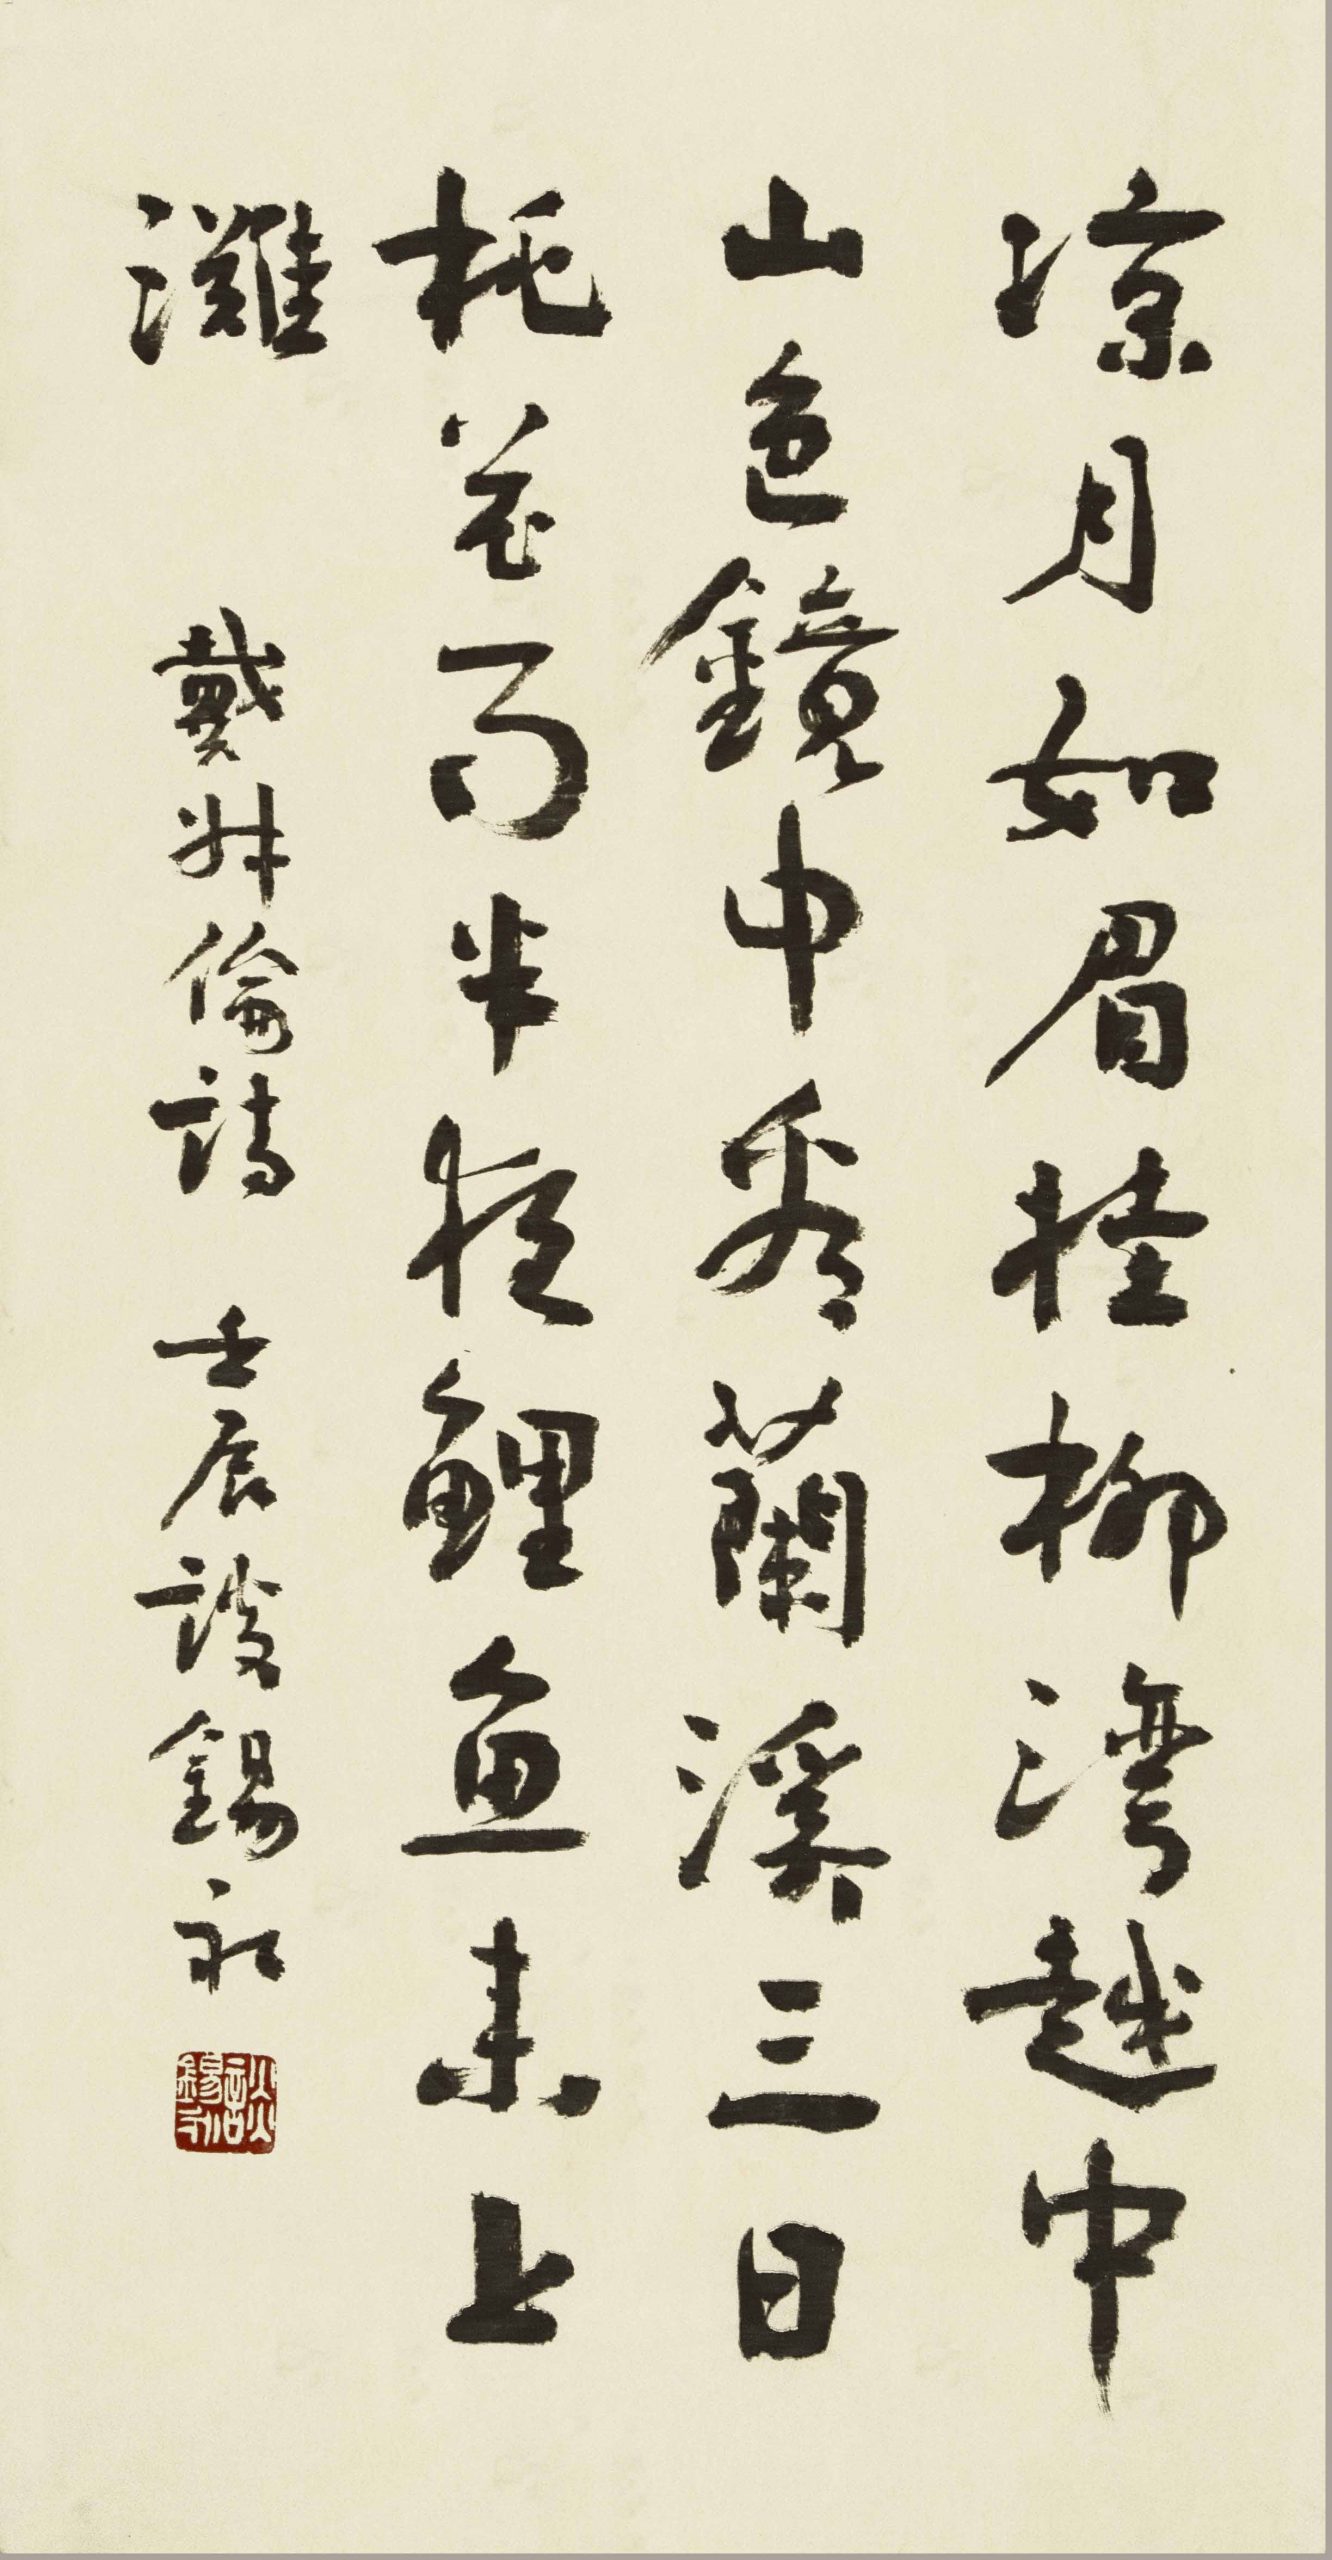 涼月如眉挂柳灣越中
山色鏡中看蘭溪三日
桃花雨半夜鯉魚來上
灘 戴叔倫詩 壬辰談錫永
談錫永